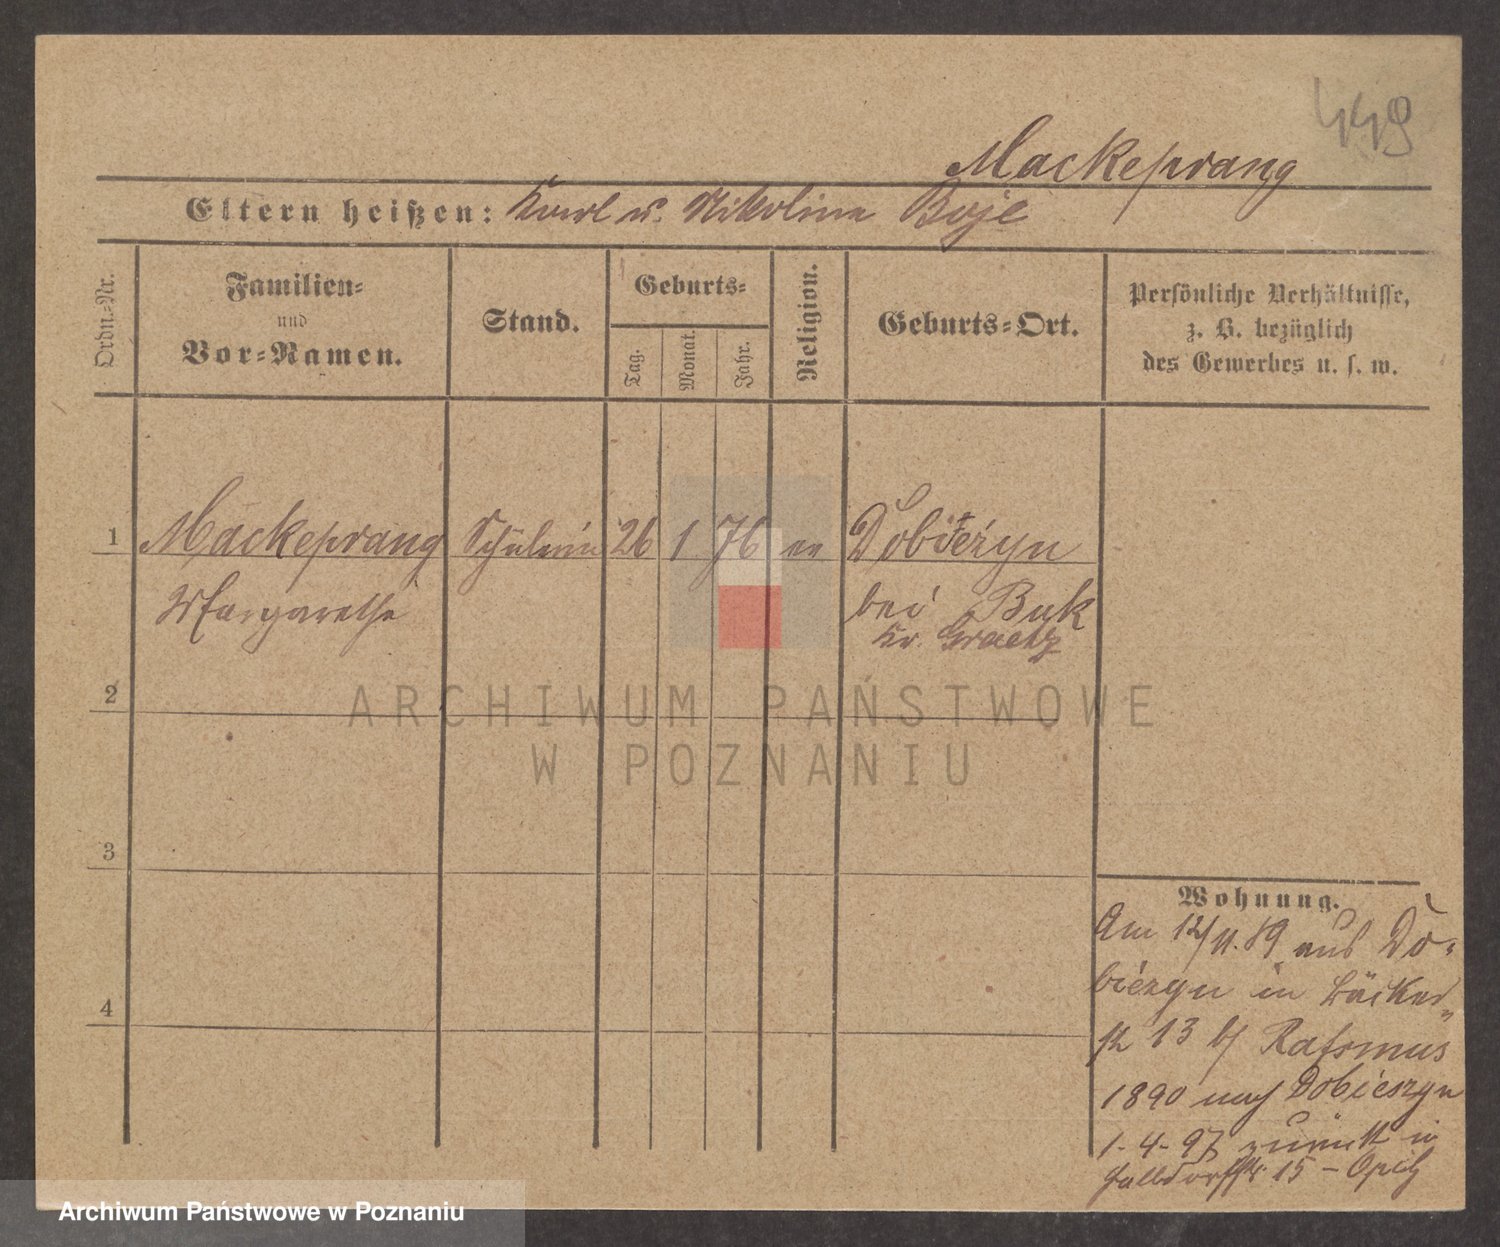 449
Mackeprang
Eltern heißen: Karl u. Nikolina Boje
Ordn.-Nr.
Familien-
und
Vor-Namen.
Stand.
Geburts-
Tag.
Monat.
Jahr.
Religion.
Geburts-Ort.
Persönliche Verhältnisse,
z. B. bezüglich
des Gewerbes u. s. w.
1 Mackeprang Schülerin 26 1 76 ev Dobiezyn
Margarethe bei Buk
Kr. Graetz
2
ARCHIWUM PAŃSTWOWE
W POZNANIU
3
Wohnung.
Am 12/11. 89 aus Do-
biezyn in Bäcker-
str 13 b/ Rassmus
4
1890 nach Dobieszyn
1-4-97 zurück in
15 - Opitz
Archiwum Państwowe w Poznaniu